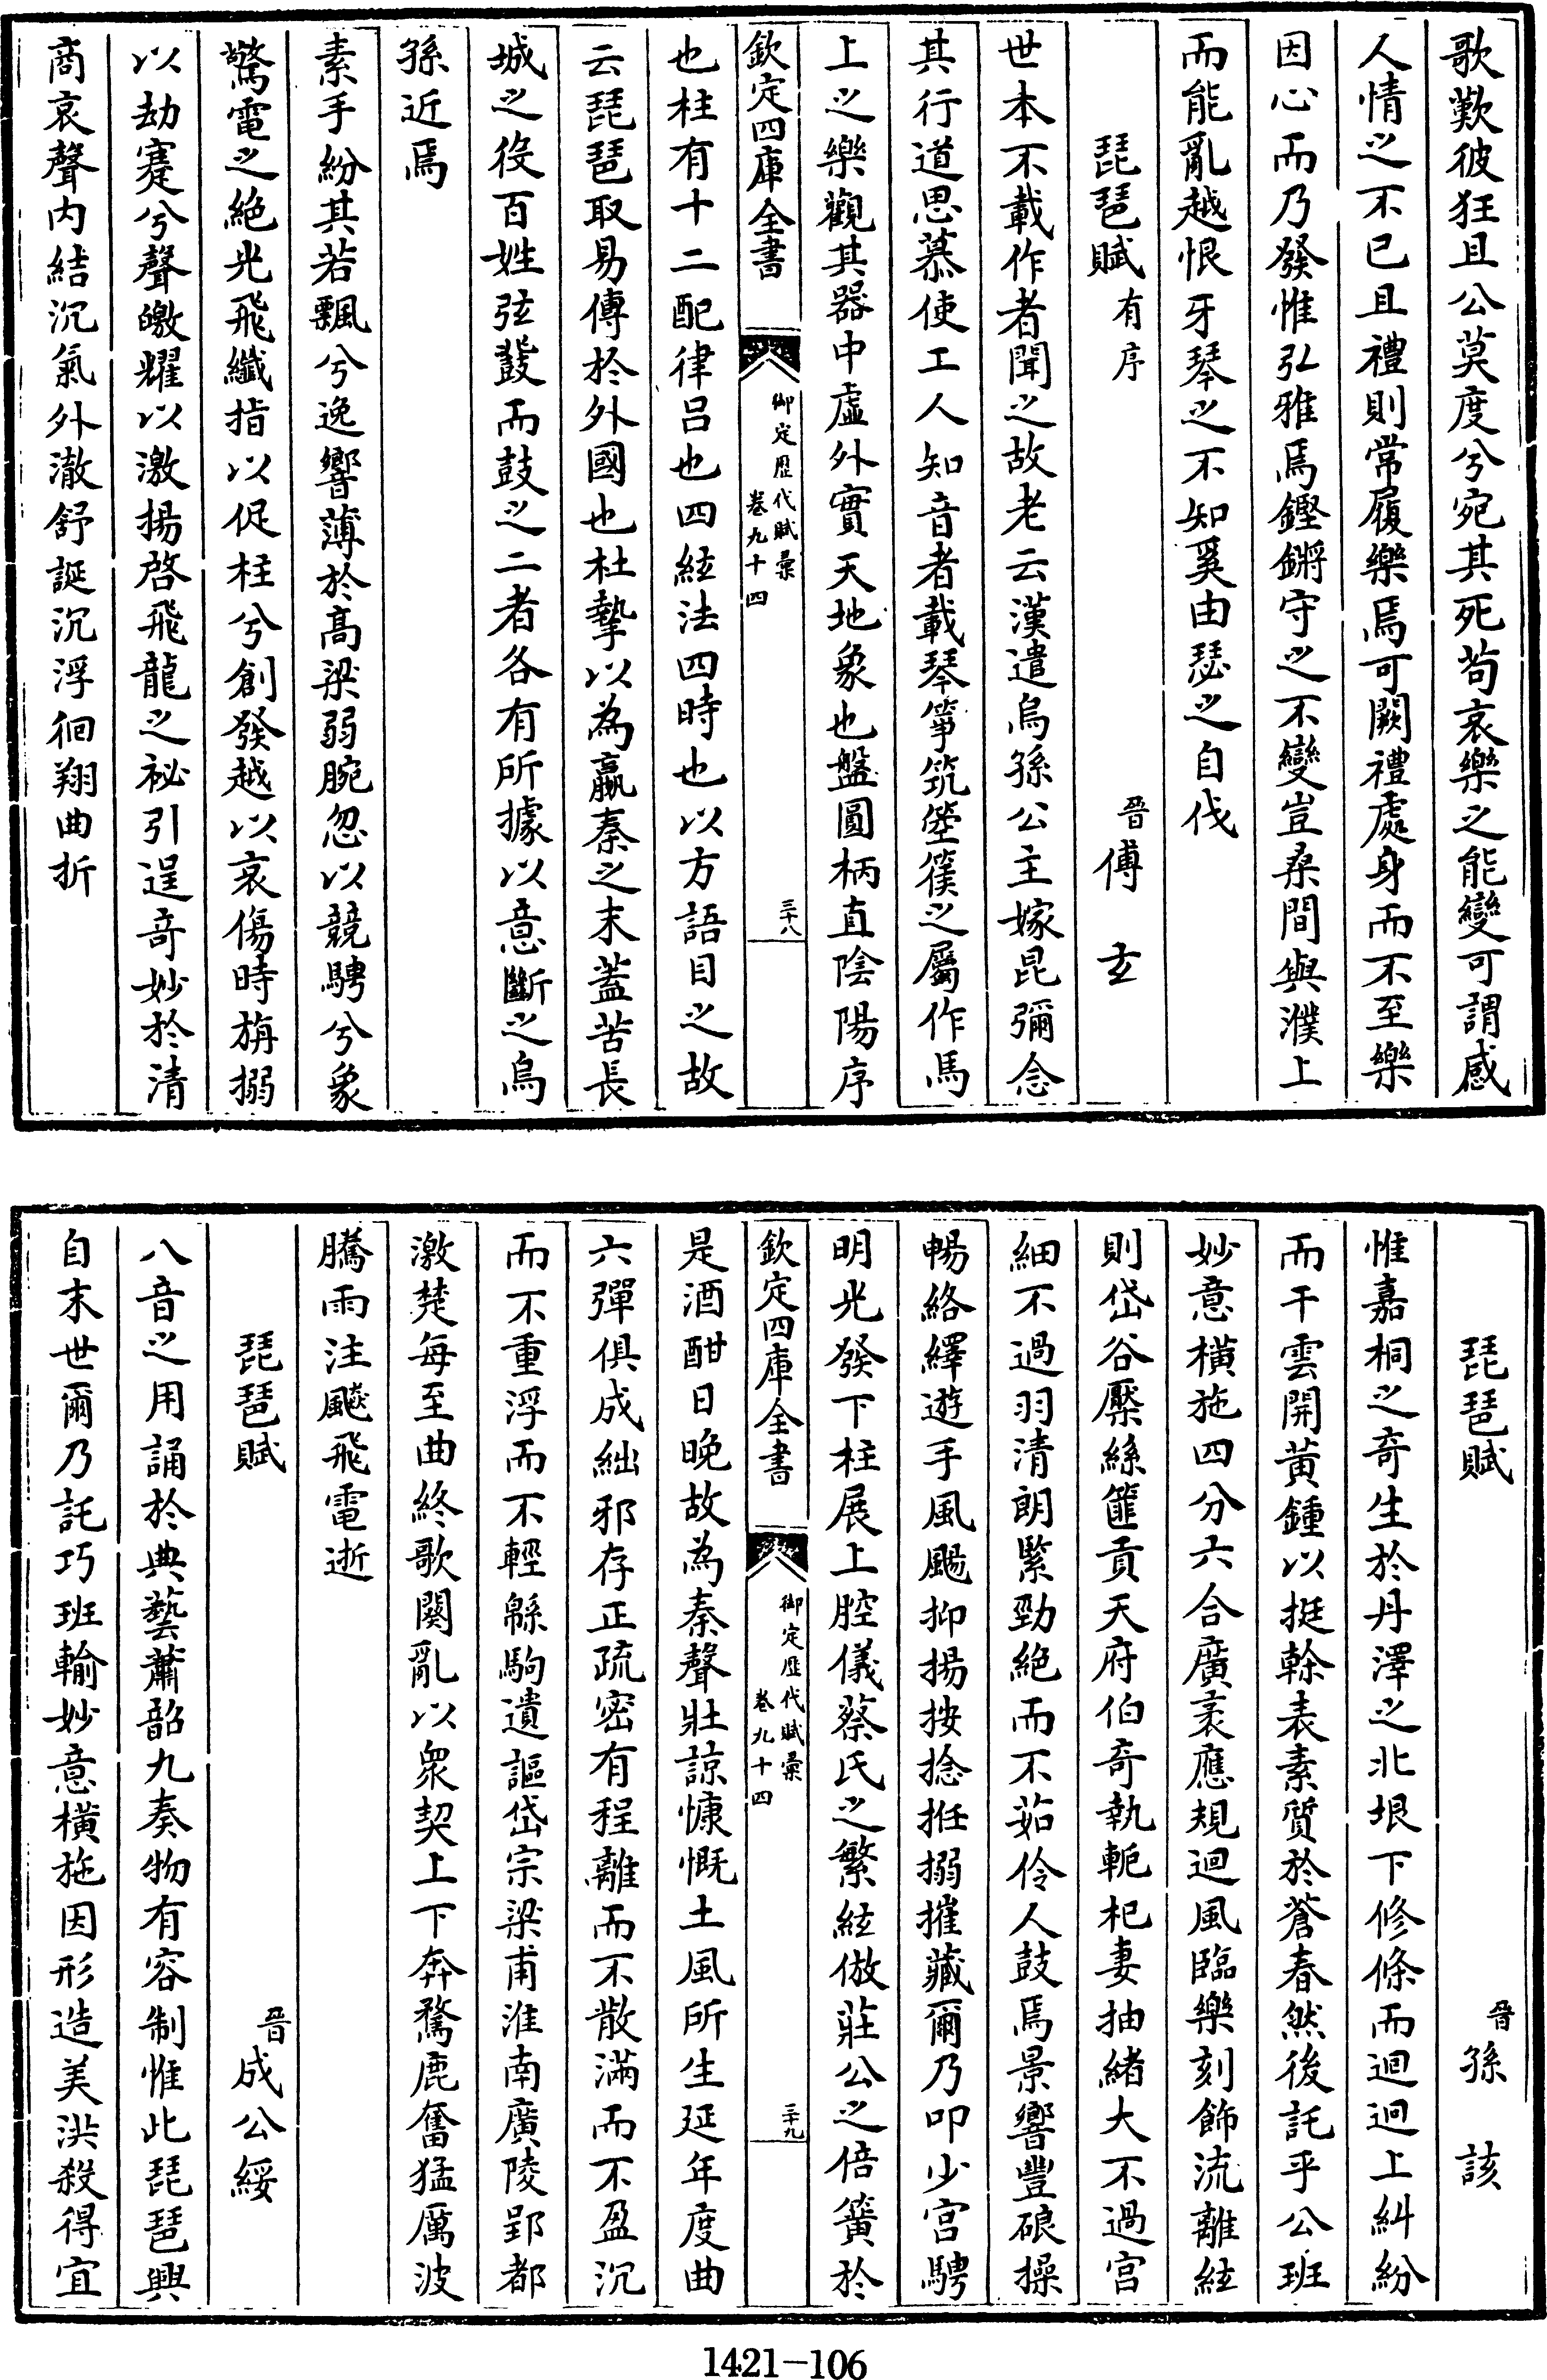 歌歎彼狂且公莫度兮宛其死苟哀樂之能變可謂感
人情之不已且禮則常履樂焉可闕禮處身而不至樂
因心而乃發惟弘雅焉鏗鏘守之不變豈桑間與濮上
而能亂越恨牙琴之不知奚由瑟之自伐
琵琶賦有序 晉傅玄
世本不載作者聞之故老云漢遣烏孫公主嫁昆彌念
其行道思慕使工人知音者載琴箏筑箜篌之屬作馬
上之樂觀其器中虛外實天地象也盤圓柄直陰陽序
欽定四庫全書 御定歷代賦彙 卷九十四 三十八
也柱有十二配律呂也四絃法四時也以方語目之故
云琵琶取易傳於外國也杜摯以為嬴秦之末蓋苦長
城之役百姓弦鼗而鼓之二者各有所據以意斷之烏
孫近焉
素手紛其若飄兮逸響薄於高梁弱腕忽以競騁兮象
驚電之絕光飛纖指以促柱兮創發越以哀傷時旃搦
以劫蹇兮聲皦耀以激揚啓飛龍之祕引逞奇妙於清
商哀聲內結沉氣外澈舒誕沉浮徊翔曲折
琵琶賦 晉孫該
惟嘉桐之奇生於丹澤之北垠下修條而迴迥上糾紛
而干雲開黃鍾以挺榦表素質於蒼春然後託乎公班
妙意橫施四分六合廣袤應規迴風臨樂刻飾流離絃
則岱谷檿絲篚貢天府伯奇執軛杞妻抽緒大不過宮
細不過羽清朗緊勁絕而不茹伶人鼓焉景響豐硠操
暢絡繹遊手風颺抑揚按捻摧搦摧藏爾乃叩少宮騁
明光發下柱展上腔儀蔡氏之繁絃倣莊公之倍簧於
欽定四庫全書 御定歷代賦彙 卷九十四 三十九
是酒酣日晚故為秦聲壯諒慷慨土風所生延年度曲
六彈俱成絀邪存正疏密有程離而不散滿而不盈沉
而不重浮而不輕緜駒遺謳岱宗梁甫淮南廣陵郢都
激楚每至曲終歌闋亂以眾契上下奔騖鹿奮猛厲波
騰雨注飇飛電逝
琵琶賦 晉成公綏
八音之用誦於典藝蕭韶九奏物有容制惟此琵琶興
自末世爾乃託巧班輸妙意橫施因形造美洪殺得宜
1421-106